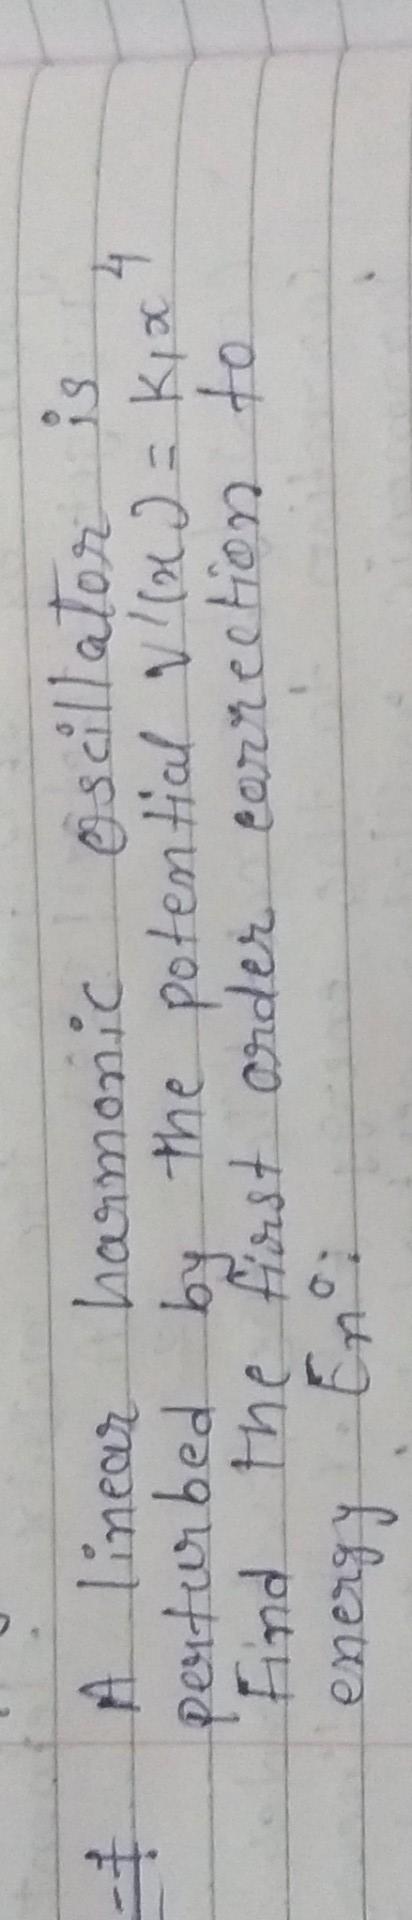 A linear harmonic oscillator is
perturbed by the potential V'(x) = K₁x⁴
Find the first order correction to
energy En⁰: